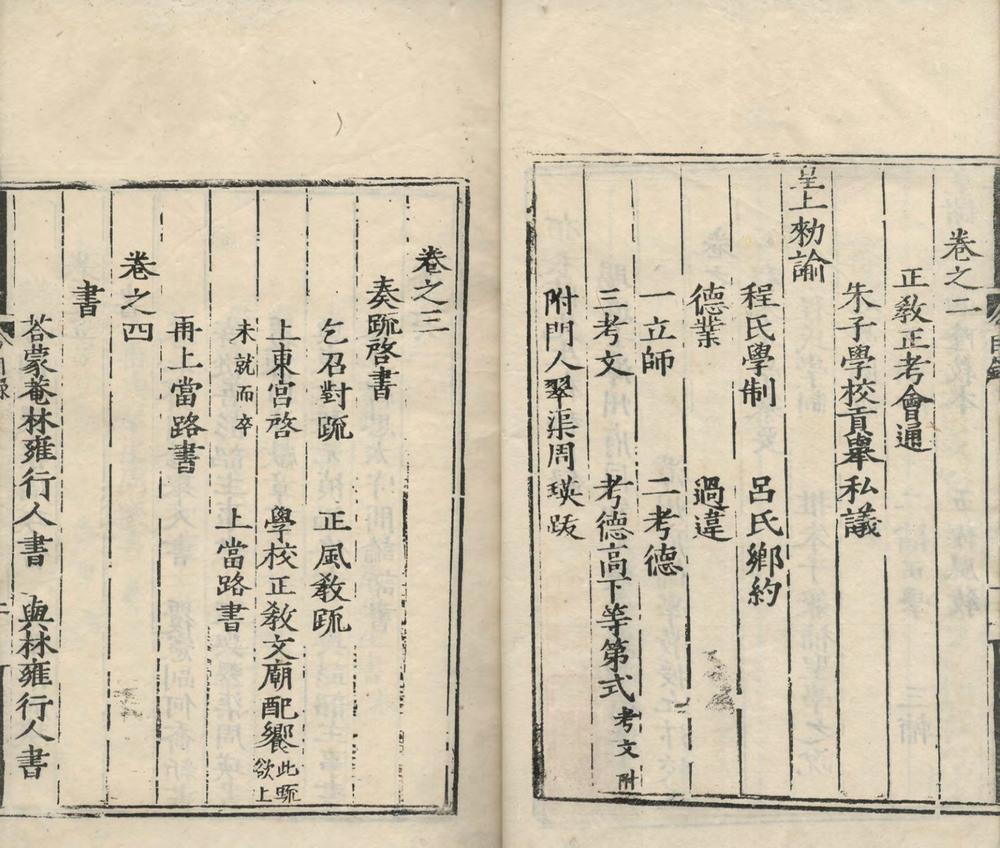 卷之二
正敎正考會通
朱子學校貢舉私議
皇上勑諭
程氏學制　呂氏鄉約
德業　過違
一立師　二考德
三考文　考德高下等第式考文附
附門人翠渠周瑛跋
卷之三
奏䟽啓書
乞召對䟽　正風敎䟽
上東宮啓　學校正敎文廟配饗此䟽欲上
未就而卒　上當路書
再上當路書
卷之四
書
荅蒙菴林雍行人書　與林雍行人書